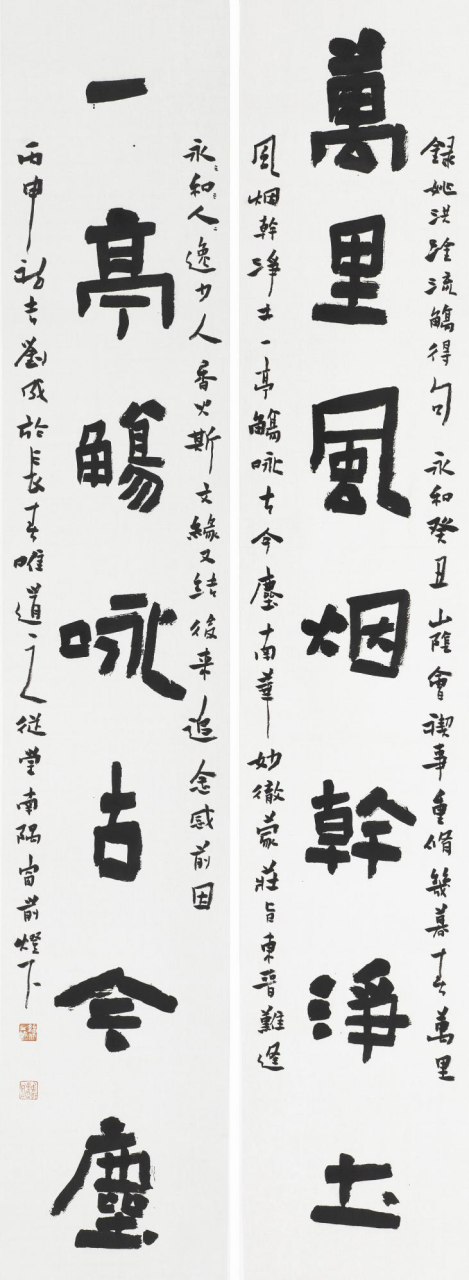 錄姚洪流觴得句 永和癸丑山陰會禊事重脩幾暮春萬里
萬里風烟幹淨土
風烟幹淨土一亭觴咏古今塵南華妙徹蒙莊旨東晉難逢
永和人逸少人香火斯文緣又結後来追念感前因
一亭觴咏古今塵
丙申初春劉成於長春唯道之人從瑩南隅窗前燈下